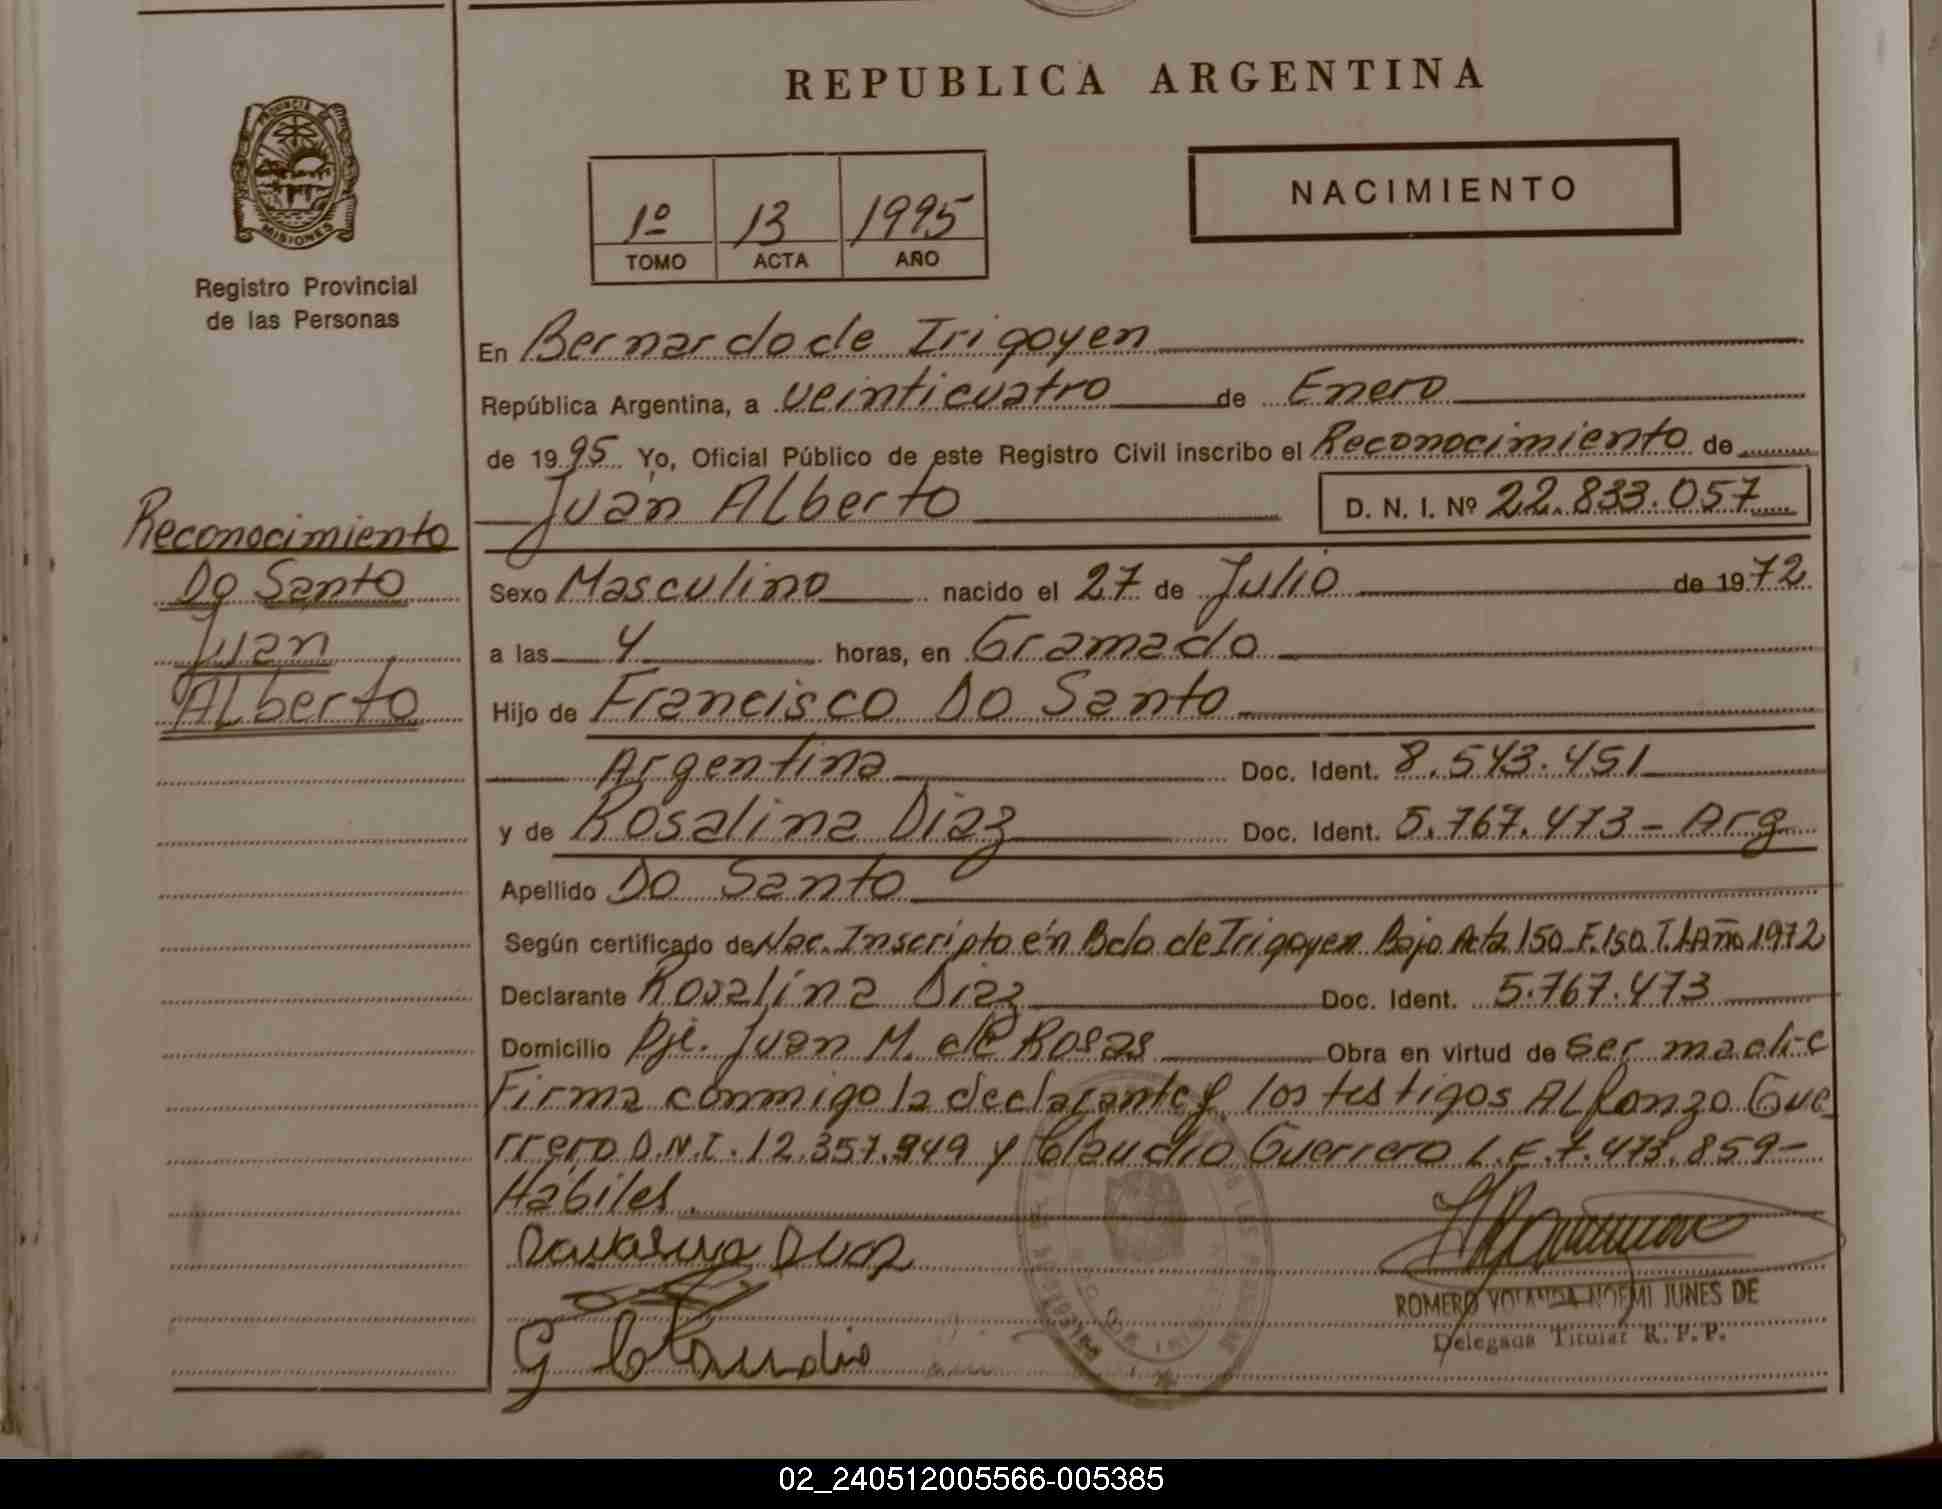 REPUBLICA ARGENTINA
PROVINCIA DE MISIONES
Registro Provincial
de las Personas
1º 13 1995
TOMO ACTA AÑO
NACIMIENTO
En Bernardo de Irigoyen
República Argentina, a veinticuatro de Enero
de 1995 Yo, Oficial Público de este Registro Civil inscribo el Reconocimiento de
Juan Alberto D. N. I. Nº 22.833.057
Reconocimiento
Do Santo
Juan
Alberto
Sexo Masculino nacido el 27 de Julio de 1972
a las 4 horas, en Gramado
Hijo de Francisco Do Santo
Argentina Doc. Ident. 8.543.451
y de Rosalina Diaz Doc. Ident. 5.767.473 - Arg
Apellido Do Santo
Según certificado de Nac. Inscripto en Bdo de Irigoyen Bajo Acta 150 F. 150 T. 1 Año 1972
Declarante Rosalina Diaz Doc. Ident. 5.767.473
Domicilio Pje. Juan M. de Rosas Obra en virtud de ser madre
Firma conmigo la declarante y los testigos Alfonzo Gue
rrero D.N.I. 12.357.949 y Claudio Guerrero L.E. 7.473.859-
Habiles.
Diaz
G Claudio
ROMERO YOLANDA NOEMI JUNES DE
Delegada Titular R. P. P.
02_240512005566-005385